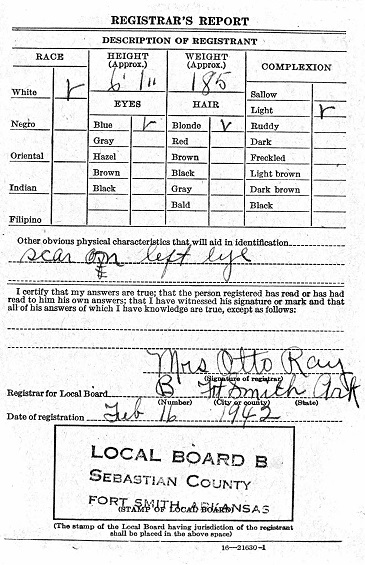 REGISTRAR'S REPORT
DESCRIPTION OF REGISTRANT
RACE
HEIGHT
(Approx.)
WEIGHT
(Approx.)
COMPLEXION
6' 1"
185
White
Sallow
Light
EYES
HAIR
Negro
Blue
Blonde
Ruddy
Gray
Red
Dark
Oriental
Hazel
Brown
Freckled
Brown
Black
Light brown
Indian
Black
Gray
Dark brown
Bald
Black
Filipino
Other obvious physical characteristics that will aid in identification
scar on left eye
I certify that my answers are true; that the person registered has read or has had
read to him his own answers; that I have witnessed his signature or mark and that
all of his answers of which I have knowledge are true, except as follows:
Mrs Otto Ray
(Signature of registrar)
Registrar for Local Board B Ft Smith Ark
(Number) (City or county) (State)
Date of registration Feb 16 1942
LOCAL BOARD B
SEBASTIAN COUNTY
FORT SMITH, ARKANSAS
(STAMP OF LOCAL BOARD)
(The stamp of the Local Board having jurisdiction of the registrant
shall be placed in the above space)
16—21630-1